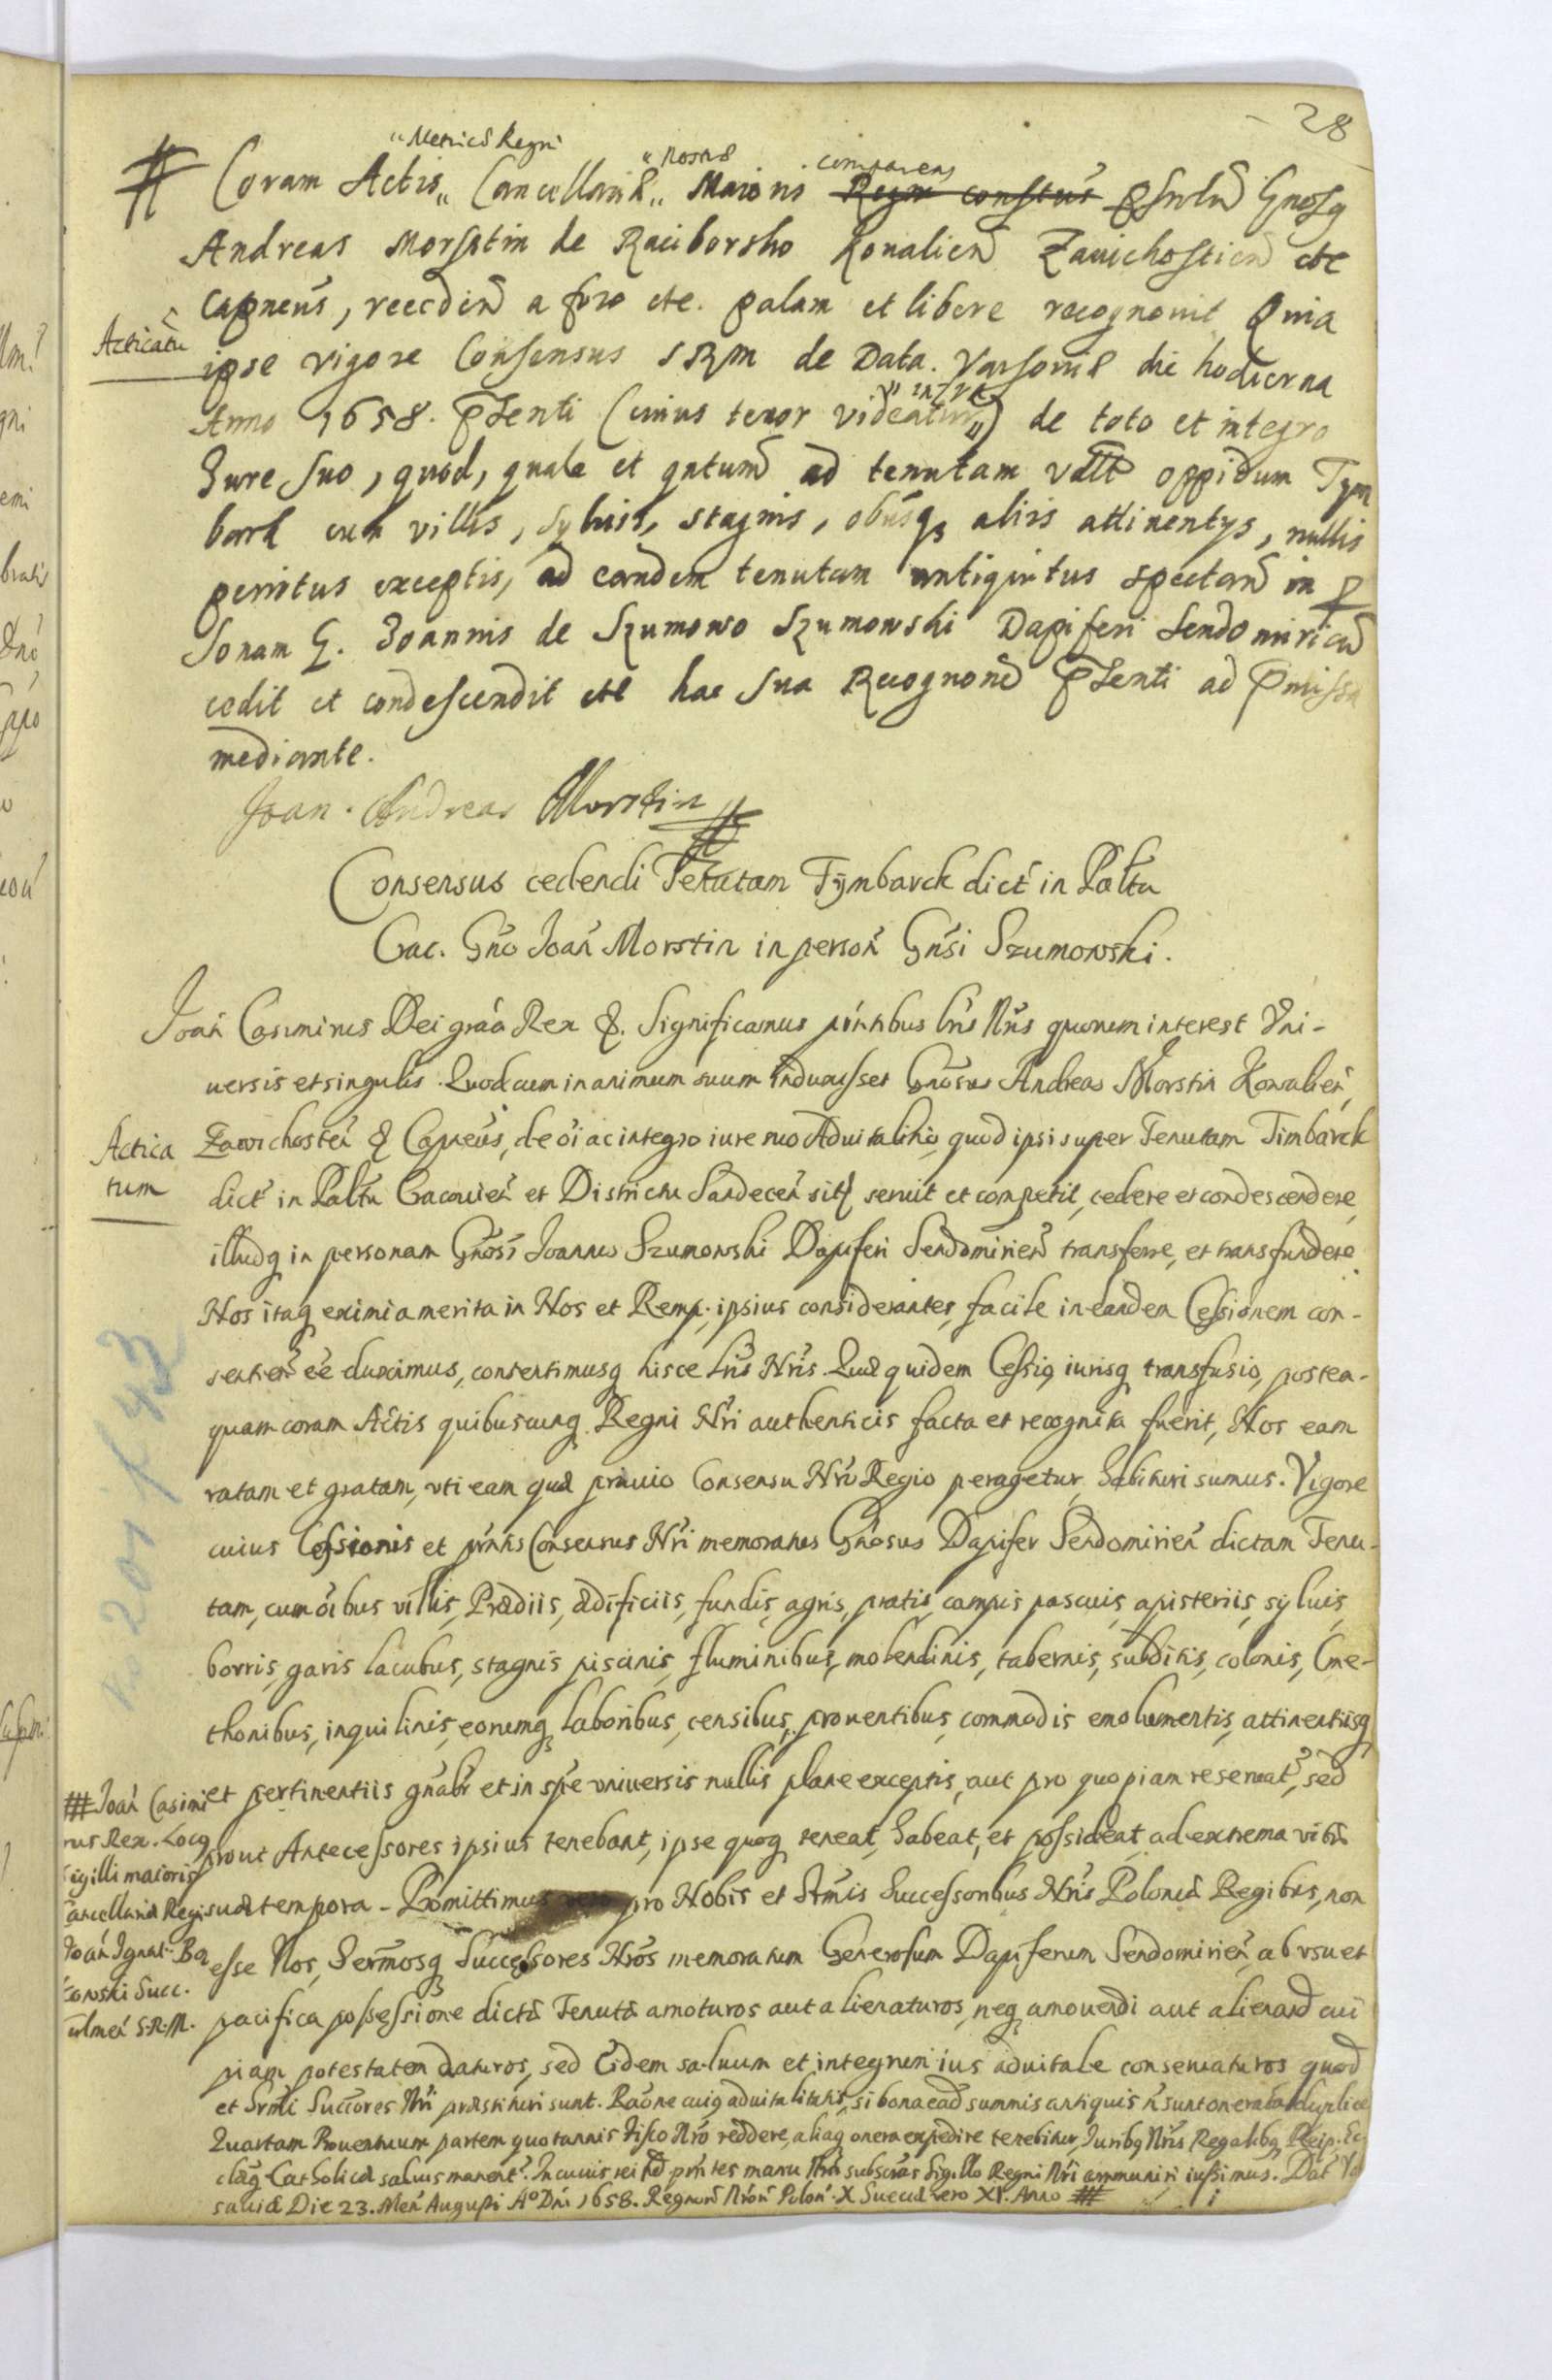 28
"Metrices Regni "nostrae comparens
Coram Actis,, Cancellariae,, Maioris Regni constus psnlr Gnosq
Andreas Morsztin de Raciborsko Kovalien Zavichostien etc
Capneus, receden a foro etc. palam et libere recognovit Quia
Acticatu
ipse vigore Consensus SRM de Data. Varsoviae die hodierna
infra
Anno 1658. pSenti (cuius tenor videatur,,) de toto et integro
Jure suo, quod, quale et qntum ad tenutam vdlt oppidum Tym
bark cum villis, syluis, stagnis, obusq3 aliis attinentys, nullis
penitus exceptis, ad eandem tenutam antiquitus spectan in p
sonam G. Joannis de Szumowo Szumowski Dapiferi Sendomirien
cedit et condescendit etc hac sua Recognone pSenti ad pmissa
mediante.
Joan. Andreas Morstin
Consensus cedendi Tenutam Tymbarck dict in Paltu
Crac. Gno Joan Morstin in person Gnsi Szumowski.
Joan Casimirus Dei graa Rex &. Significamus pntibus lris Nris quorum interest Vni-
uersis et singulis. Quod cum in animum suum induxisset Gnosus Andreas Morstin Kowalien,
Actica
tum
Zawichosten & Capneus, de oi ac integro iure suo Aduitalitio, quod ipsi super Tenutam Timbarck
dict in Paltu Cracouien et Districtu Sandecen sit seruit et competit, cedere et condescendere,
illudq in personam Gnosi Joannis Szumowski Dapiferi Sendomirien transferre, et transfundere.
Nos itaq eximia merita in Nos et Remp. ipsius considerantes, facile in eandem Cessionem con-
sentien ee duximus, consentimusq hisce lris Nris. Quae quidem Cessio, iurisq transfusio, postea-
quam coram Actis quibuscunq Regni Nri authenticis facta et recognita fuerit, Nos eam
ratam et gratam, vti eam quae praeuio Consensu Nro Regio peragetur, habituri sumus. Vigore
cuius Cessionis et pntis Consensus Nri memoratus Gnosus Dapifer Sendomirien dictam Tenu-
tam, cum oibus villis, Praediis, aedificiis, fundis, agris, pratis, campis pascuis, apisteriis, syluis,
borris, garis lacubus, stagnis piscinis, fluminibus, molendinis, tabernis, subditis, colonis, Cme-
thonibus, inquilinis, eorumq laboribus, censibus, prouentibus, commodis emolumentis, attinentiisq
et pertinentiis gnalr et in spe vniuersis nullis plane exceptis, aut pro quopiam reseruat, sed
prout Antecessores ipsius tenebant, ipse quoq teneat, habeat, et possideat, ad extrema vitae
suae tempora. Promittimus pro Nobis et Srmis Successoribus Nris Poloniae Regibus, non
esse Nos, Sermosq Successores Nros memoratum Generosum Dapiferum Sendomirien, ab vsu et
pacifica possessione dictae Tenutae amoturos aut alienaturos, neq amouendi aut alienand cui
piam potestatem daturos, sed Eidem saluum et integrum ius aduitale conseruaturos quod
et Srmi Succores Nri praestituri sunt. Raone cuiq aduitalitatis, si bona ead summis antiquis n sunt onerata duplice
Quartam Prouentuum partem quotannis Fisco Nro reddere, aliaq onera expedire tenebitur, Juribq Nris Regalibq, Reip. Ec
claeq Catholicae saluis manent. In cuius rei fid pntes manu Nra subscras Sigillo Regni Nri communiri iussimus. Dat Var
sauiae Die 23. Men Augusti Ao Dni 1658. Regnor Nror Polon. X Sueciae vero XI. Anno #
# Joan Casimi
rus Rex. Locq
Sigilli maioris
Cancellariae Regni
Joan Ignat Bą
kowski Succ.
ulmen S.R.M.